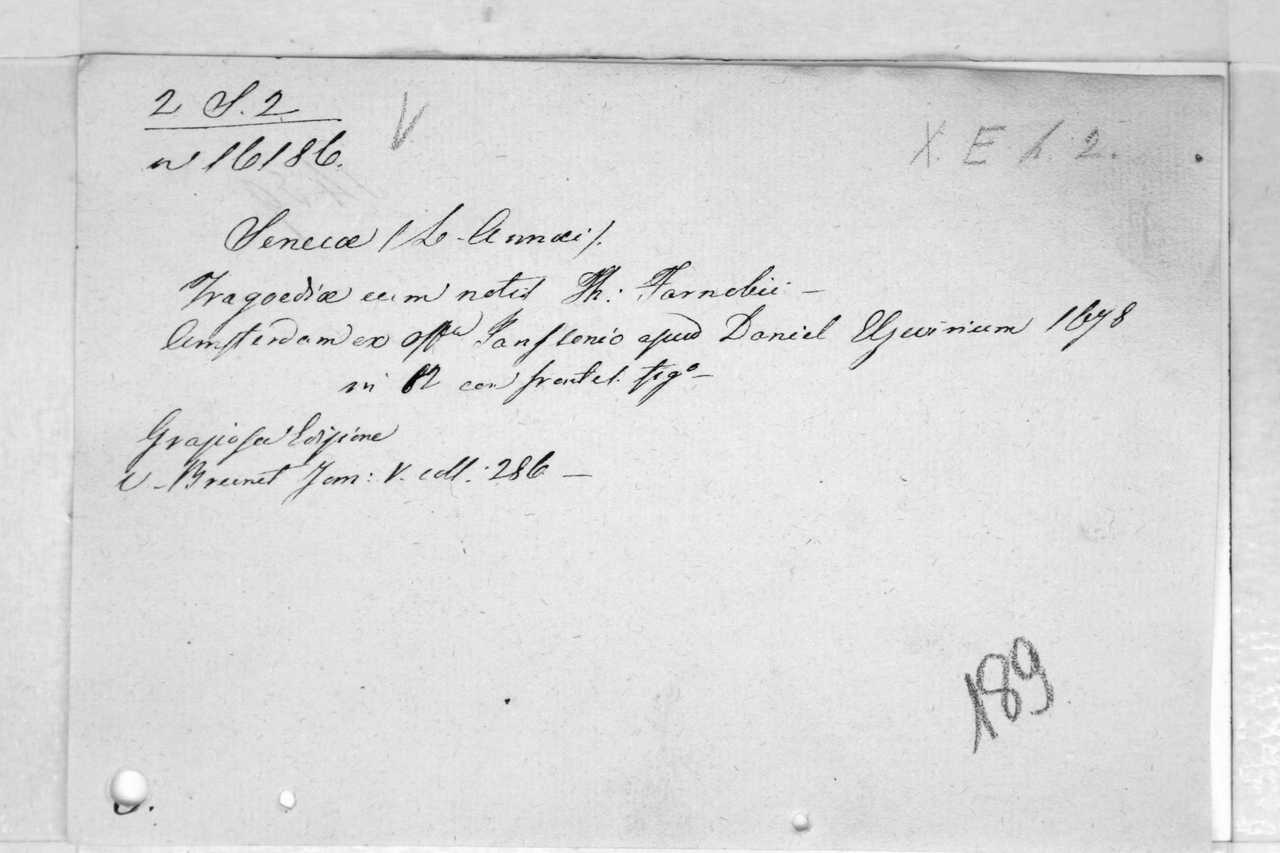 2 S. 2.
V
X. E. h. 2.
n° 16186.
Senecæ (L. Annæi).
Tragoediæ cum notis Th: Farnebii -
Amsterdam ex offna Janssonio apud Daniel Elzevirium 1678
in 12 con frontes. figo -
Graziosa Edizione
V - Brunet Tom: V. coll: 286 -
189